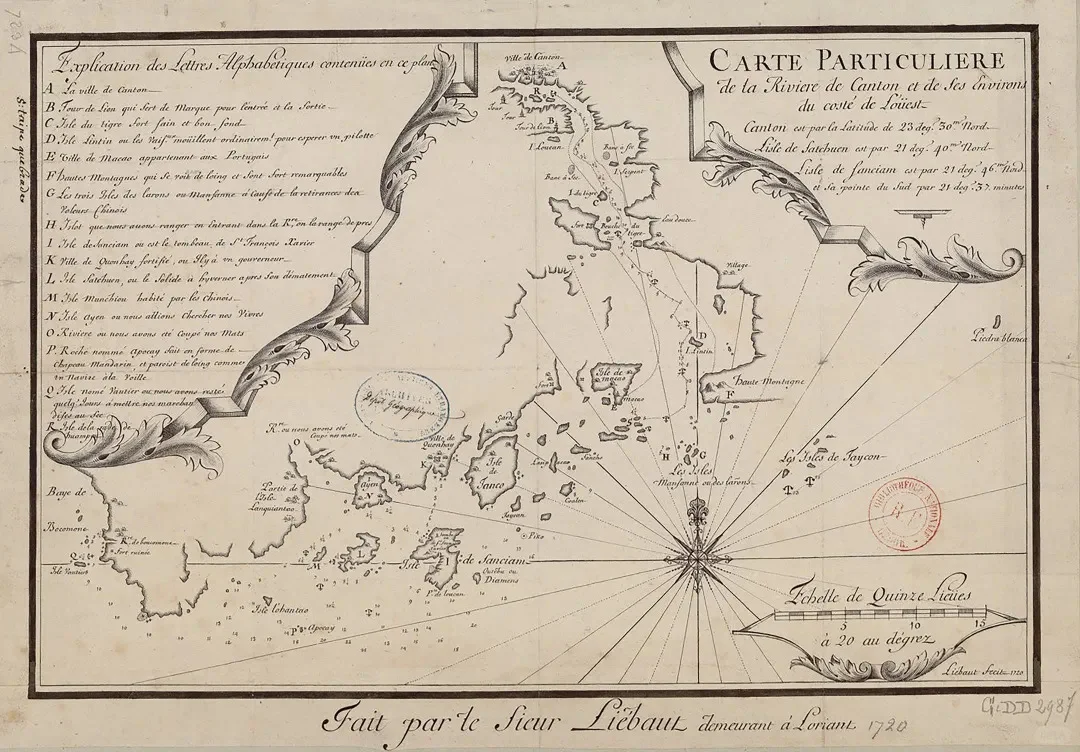 CARTE PARTICULIERE
de la Riviere de Canton et de Ses Environs
du costé de Loüest
Canton est par la Latitude de 23 deg. 30 m Nord
Lisle de Satchuen est par 21 deg. 40 m Nord
Lisle de Sanciam est par 21 deg. 46 m Nord
et Sa pointe du Sud par 21 deg. 37 minutes
Explication des Lettres Alphabetiques contenües en ce plan
A La ville de Canton
B Tour de Lion qui Sert de Marque pour L'entrée et la Sortie
C Isle du tigre Fort Sain et bon fond
D Isle Lintin ou les mouillent ordinairem.t pour esperer un pilotte
E Ville de Macao appartenant aux Portugais
F hautes Montagnes qui Se voit de loing et Sont Fort remarquables
G Les trois Isles des larons ou Mansanne à Cause de la retirances des
Voleurs Chinois
H Islot que nous avons ranger en Entrant dans la on la range de pres
I Isle de Sanciam ou est le tombeau de S.t François Xavier
K Ville de Quenhay fortifié, ou Il y à un gouverneur
L Isle Satchuen, ou le Solide à hyverner apres Son dématement
M Isle Munchiou habité par les Chinois
N Isle Ayen ou nous allions Chercher nos Vivres
O Riviere ou nous avons eté Coupé nos Mats
P Roche nommé Apocay fait en forme de
Chapeau Mandarin et paroist de loing comme
un Navire à la Voille
Q Isle nomé Vautier ou nous avons resté
quelq. Jours à mettre nos marchan
dises au Sec
R Isle de la rade de
huampou
Ville de Canton
A
R
Tour
Tour
Tour de Lion
B
I Loutau
Banc à Sec
I Serpent
Banc à Sec
I du tigre
C
Fort
Bouche du
tigre
Village
D
I. Lintin
Haute Montagne
F
Piedra blanca
Isle de
macao
E
macao
Les Isles de Taycon
H
G
Les Isles
Mansanne ou des larons
R.re ou nous avons eté
Coupé nos mats
O
Ville de
Quenhay
K
Ayen
N
Partie de
l'Isle
Lanquiantao
Isle
de
Tanco
Piko
Baye de
Bocomone
Fort ruinée
Q
Isle Vautier
M
L
Isle
I
de Sanciam
Outchu ou
Diamens
Isle Lohantao
P
Apocay
Echelle de Quinze Lieües
5
10
15
à 20 au dégrez
Liébaut Fecit 1720
Fait par le Sieur Liébaut demeurant à Loriant 1720
Ge DD 2987
BIBLIOTHEQUE NATIONALE
R F